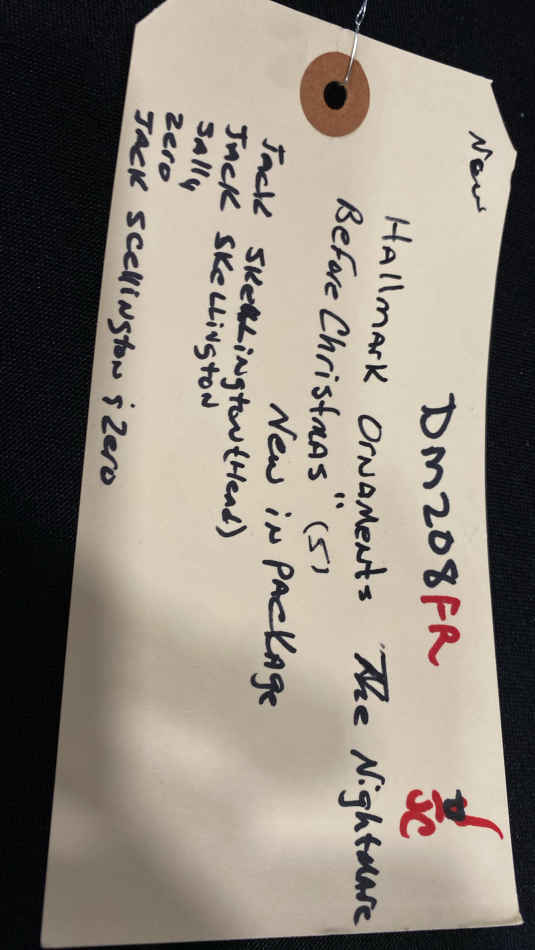 New
DM208FR
JC
Hallmark Ornaments "The Nightmare
Before Christmas" (5)
New in Package
Jack Skellington (Head)
Jack Skellington
Sally
Zero
Jack Scellington & Zero